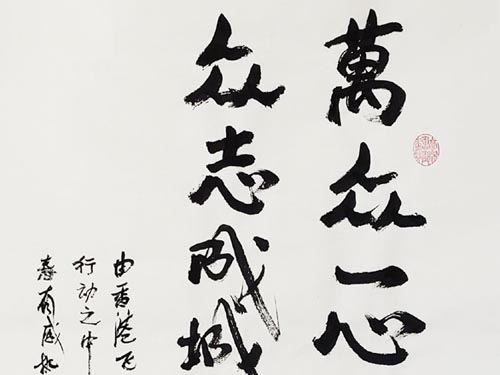 萬众一心
众志成城
由香港
行动之中
有感